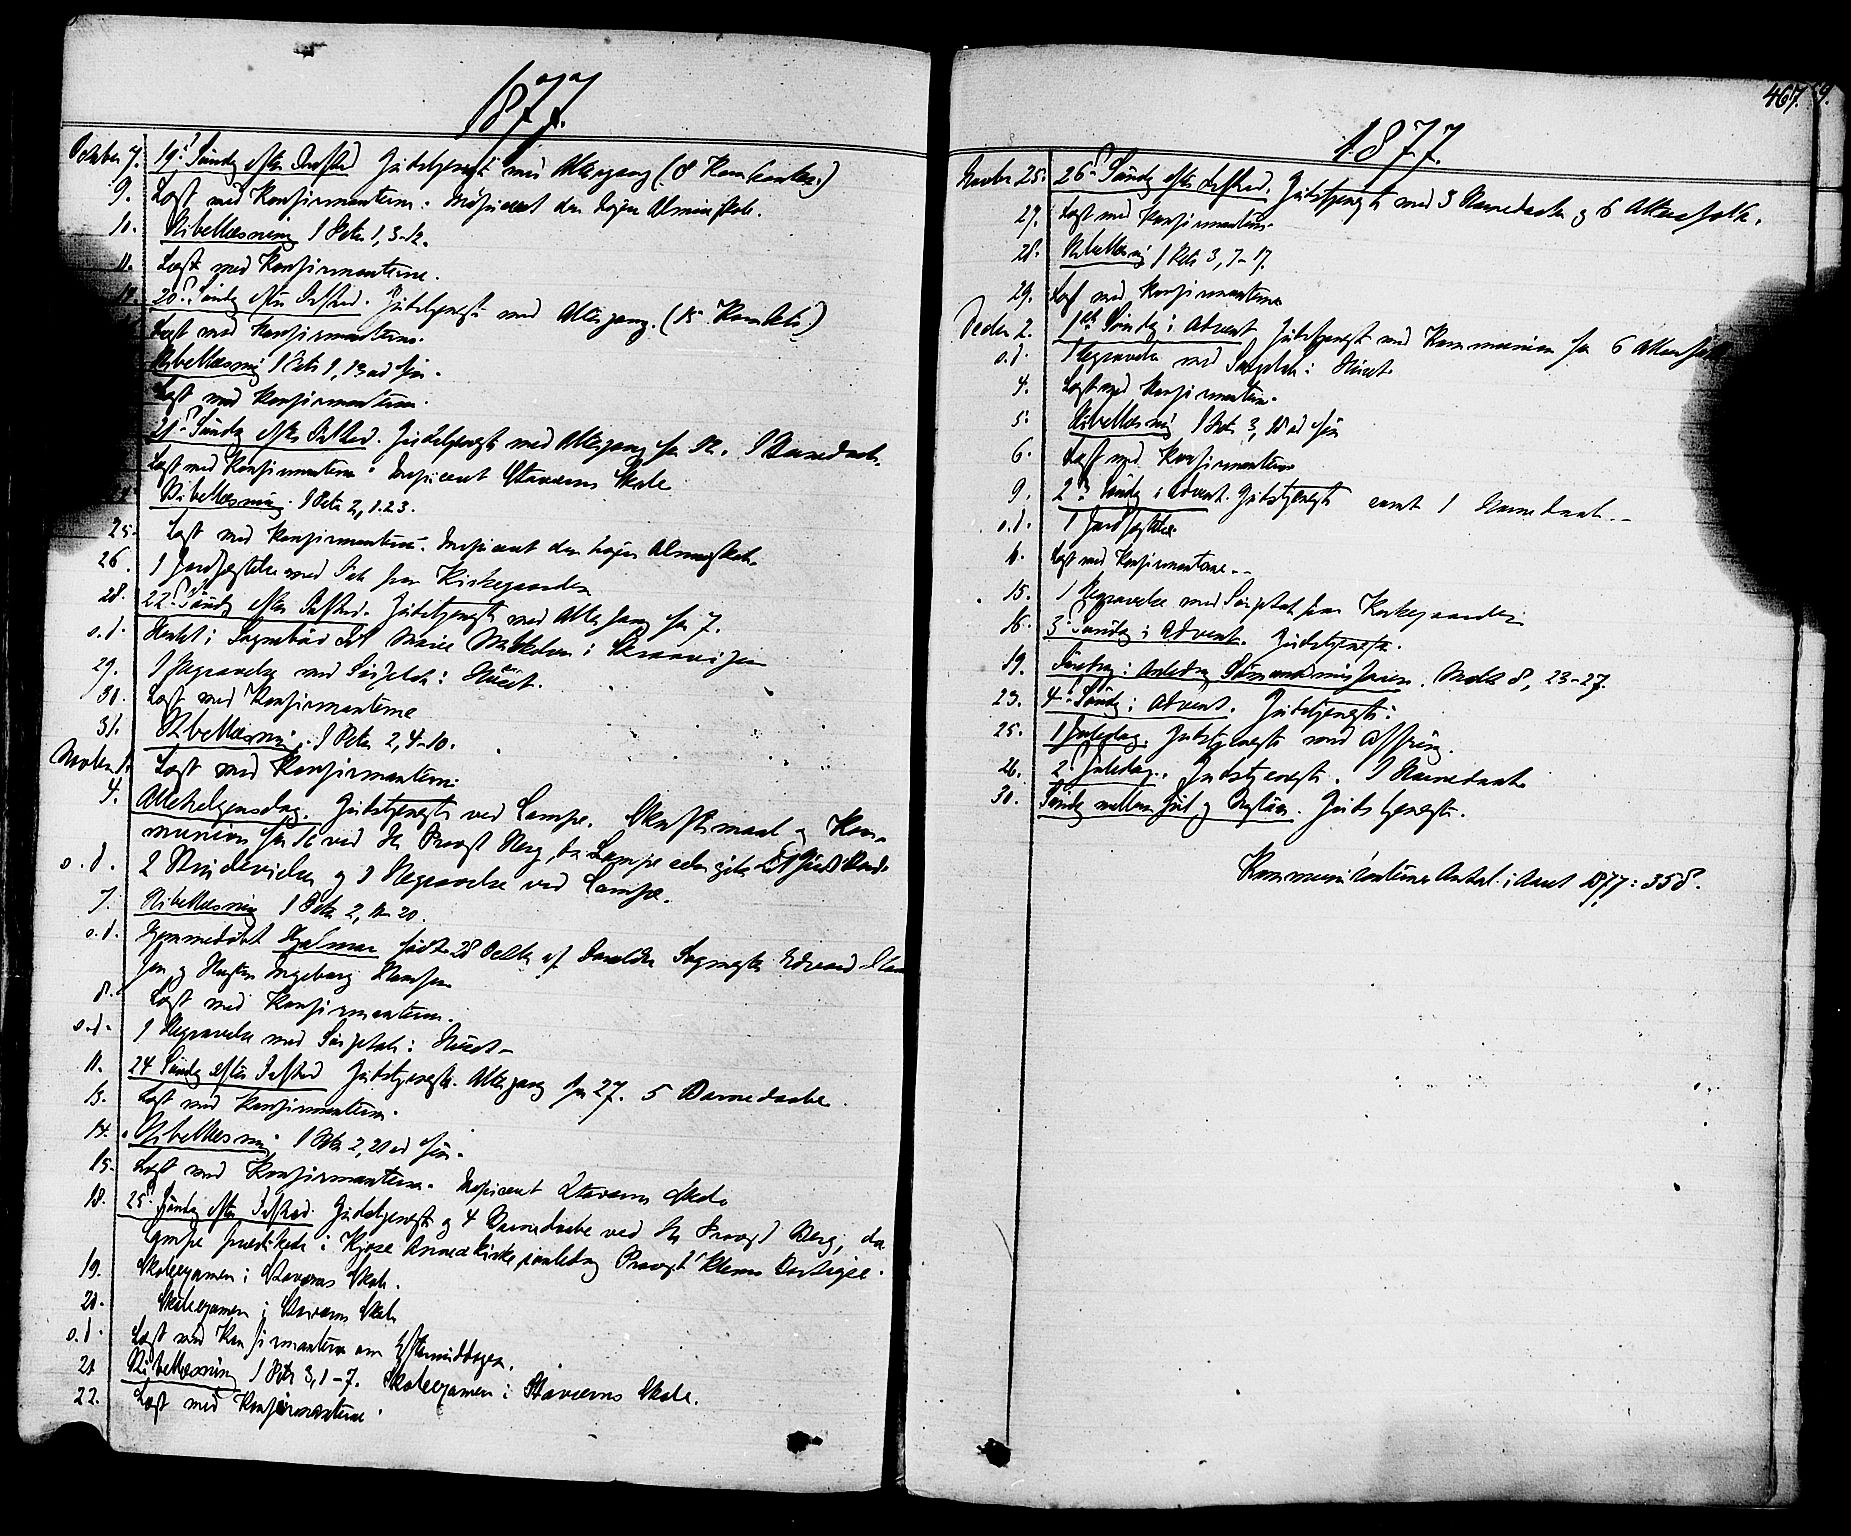 1877.
October 7. 19. Søndag efter Trefold. Gudstjeneste med Altergang (8 Kom
9. Læst med Konfirmanterne. Inspiceret den højere Almueskole.
10. Bibellæsning 1 Petr 1, 3-12.
11. Læst med Konfirmanterne.
20. Søndag efter Trefold. Gudstjeneste med Altergang. (15
Læst med Konfirmanterne.
Bibellæsning 1 Petr 1, 13 ad fin.
Læst med Konfirmanterne.
21. Søndag efter Trefold. Gudstjeneste med Altergang for 1 Barnedaab.
Læst med Konfirmanterne. Inspiceret Staværns Skole
Bibellæsning. 1 Petr 2, 1-3.
25. Læst med Konfirmanterne. Inspiceret den højere Almueskole
26. 1 Jordfæstelse med Tale paa Kirkegaarden
28. 22. Søndag efter Trefold. Gudstjeneste med Altergang for 7.
s.d. Marie i
29. 1 Begravelse med Sørgetale i Huset.
30. Læst med Konfirmanterne
31. Bibellæsning. 1 Petr 2, 4-10.
Novber 1. Læst med Konfirmanterne
4. Allehelgensdag. Gudstjeneste ved Lampe. Skriftemaal og Kom-
munion for 16 ved Hr Provst Berg, da Lampe
s.d. 2 Brudevielser og 1 Begravelse ved Lampe.
7. Bibellæsning 1 Petr 2, 11-20.
s.d. Hjemmedøbt Hjalmar født 28 Octbr af Forældre Edvard
sen og Hustru Ingeborg Hansen
8. Læst med Konfirmanterne.
s.d. 1 Begravelse med Sørgetale i Huset
11. 24 Søndag efter Trefold Gudstjeneste. Altergang for 27. 5 Barnedaabe.
13. Læst med Konfirmanterne.
14. Bibellæsning 1 Petr 2, 21 ad fin.
15. Læst med Konfirmanterne. Inspiceret Staværns Skole
18. 25. Søndag efter Trefold. Gudstjeneste og 4 Barnedaabe ved Hr Provst Berg, da
Lampe prædikede i Kjose Annexkirke i anledng Provst
19. Skoleexamen i Staværns Skole.
20. Skoleexamen i Staværns Skole
s.d. Læst med Konfirmanterne om Eftermiddagen.
21 Bibellæsning 1 Petr 3, 1-7. Skoleexamen i Staværns Skole.
22. Læst med Konfirmanterne
467.
1877.
Novbr 25. 26. Søndag efter Trefold. Gudstjeneste med 3 Barnedaabe og 6 Altersfolk.
27. Læst med Konfirmanterne.
28. Bibellæsning 1 Petr 3, 7-17.
29. Læst med Konfirmanterne
Decbr 2. 1ste Søndag i Advent Gudstjeneste med Kommunion for 6 Altersfolk
s.d. 1 Begravelse med Sørgetale i Huset.
4. Læst med Konfirmanterne.
5. Bibellæsning 1 Petr 3, 18 ad fin
6. Læst med Konfirmanterne
9. 2. Søndag i Advent. Gudstjeneste samt 1 Barnedaab.
s.d. 1 Jordfæstelse
11. Læst med Konfirmanterne.
15. 1 Begravelse med Sørgetale paa Kirkegaarden
16. 3. Søndag i Advent. Gudstjeneste.
19. Foredrag i Anledng Sømandsmissionen. Math 8, 23-27.
23. 4. Søndag i Advent. Gudstjeneste.
25. 1 Juledag. Gudstjeneste med Offring.
26. 2. Juledag. Gudstjeneste. 1 Barnedaab
30. Søndag mellem Jul og Nytaar. Gudstjeneste.
Kommunikanternes Antal i Aaret 1877: 358.